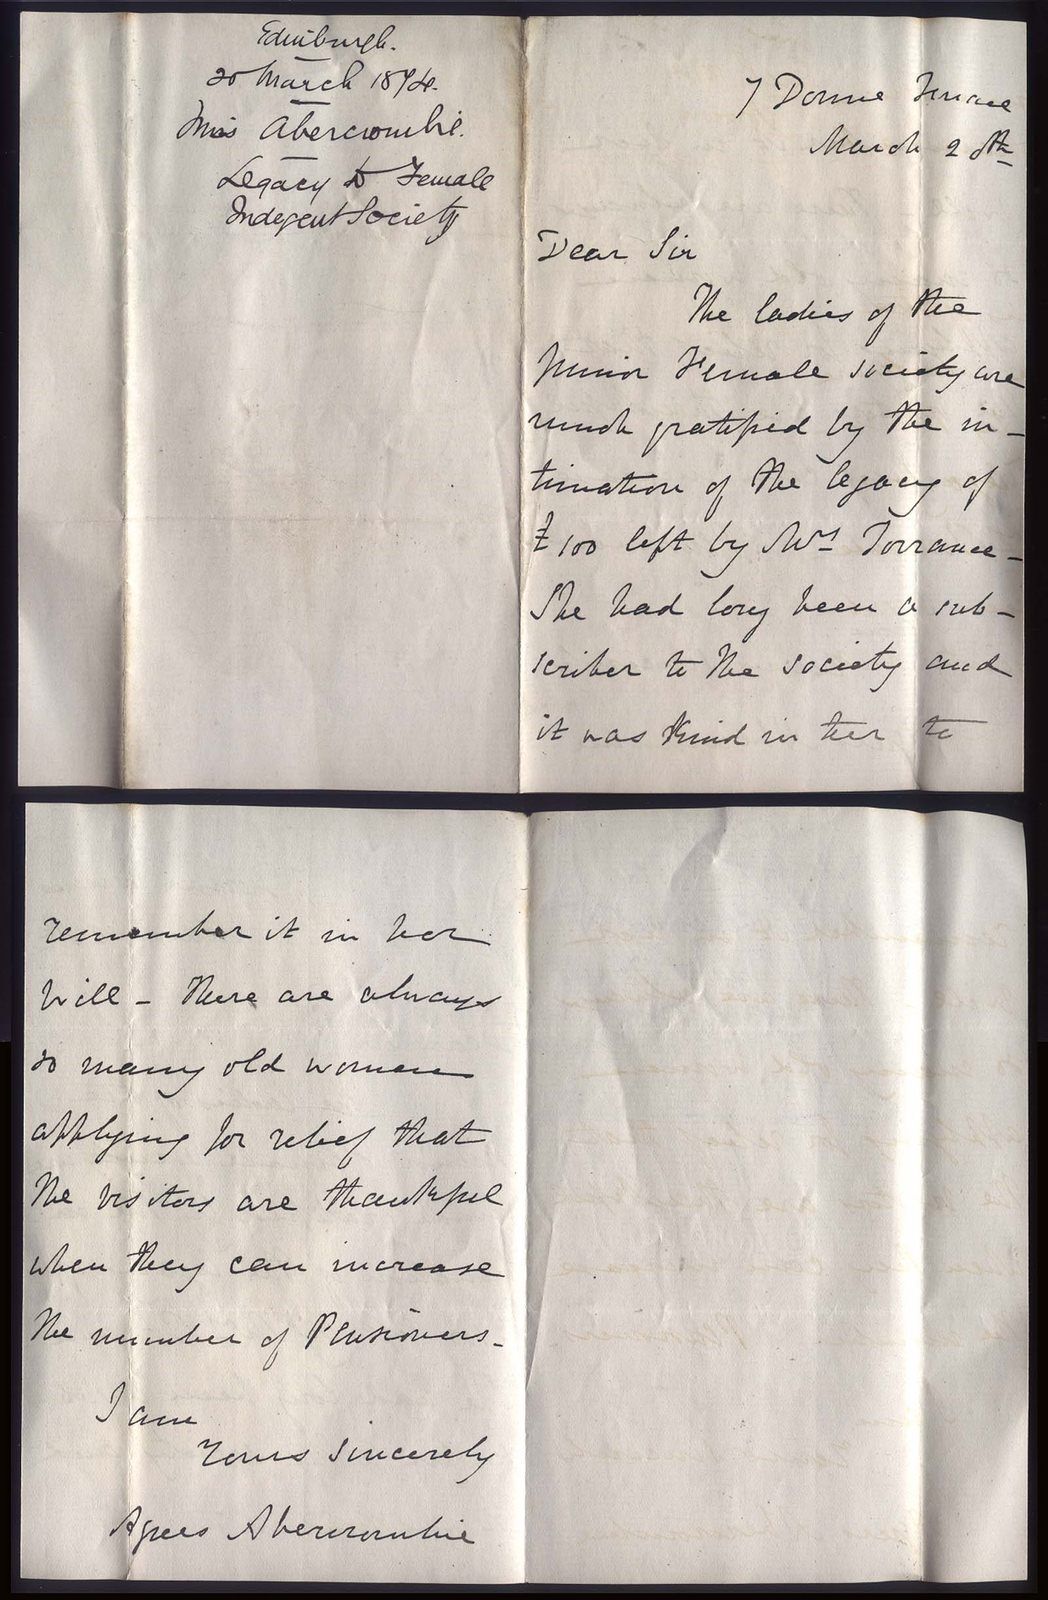 Edinburgh.
20 March 1874.
Miss Abercrombie.
Legacy to Female
Indegent Society
7 Doune Terrace
March 20th
Dear Sir
The ladies of the
Junior Female society are
much gratified by the in-
timation of the legacy of
£100 left by Mrs Torrance -
She had long been a sub-
scriber to the society and
it was kind in her to
remember it in her
Will - There are always
so many old women
applying for relief that
the visitors are thankful
when they can increase
the number of Pensioners -
I am
Yours sincerely
Agnes Abercrombie